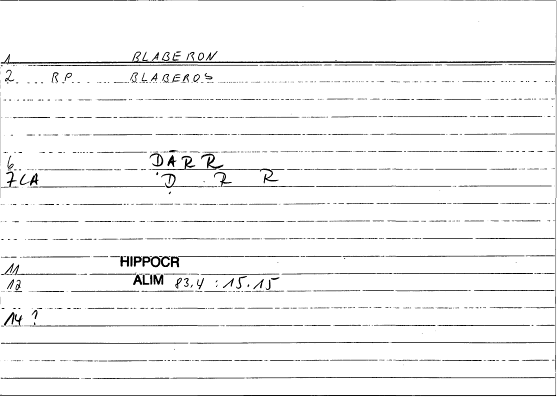 1 BLABERON
2 R.P. BLABEROS
6 DĀRR
7 LA Ḍ R R
11 HIPPOCR
12 ALIM 83.4 : 15.15
14 ?